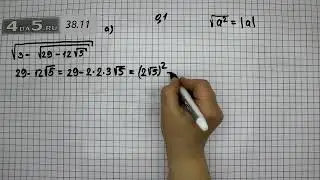 4ДА5.РУ 38.11 а) √a² = |a|
√(3 - √(29 - 12√5))
29 - 12√5 = 29 - 2·2·3√5 = (2√5)² -